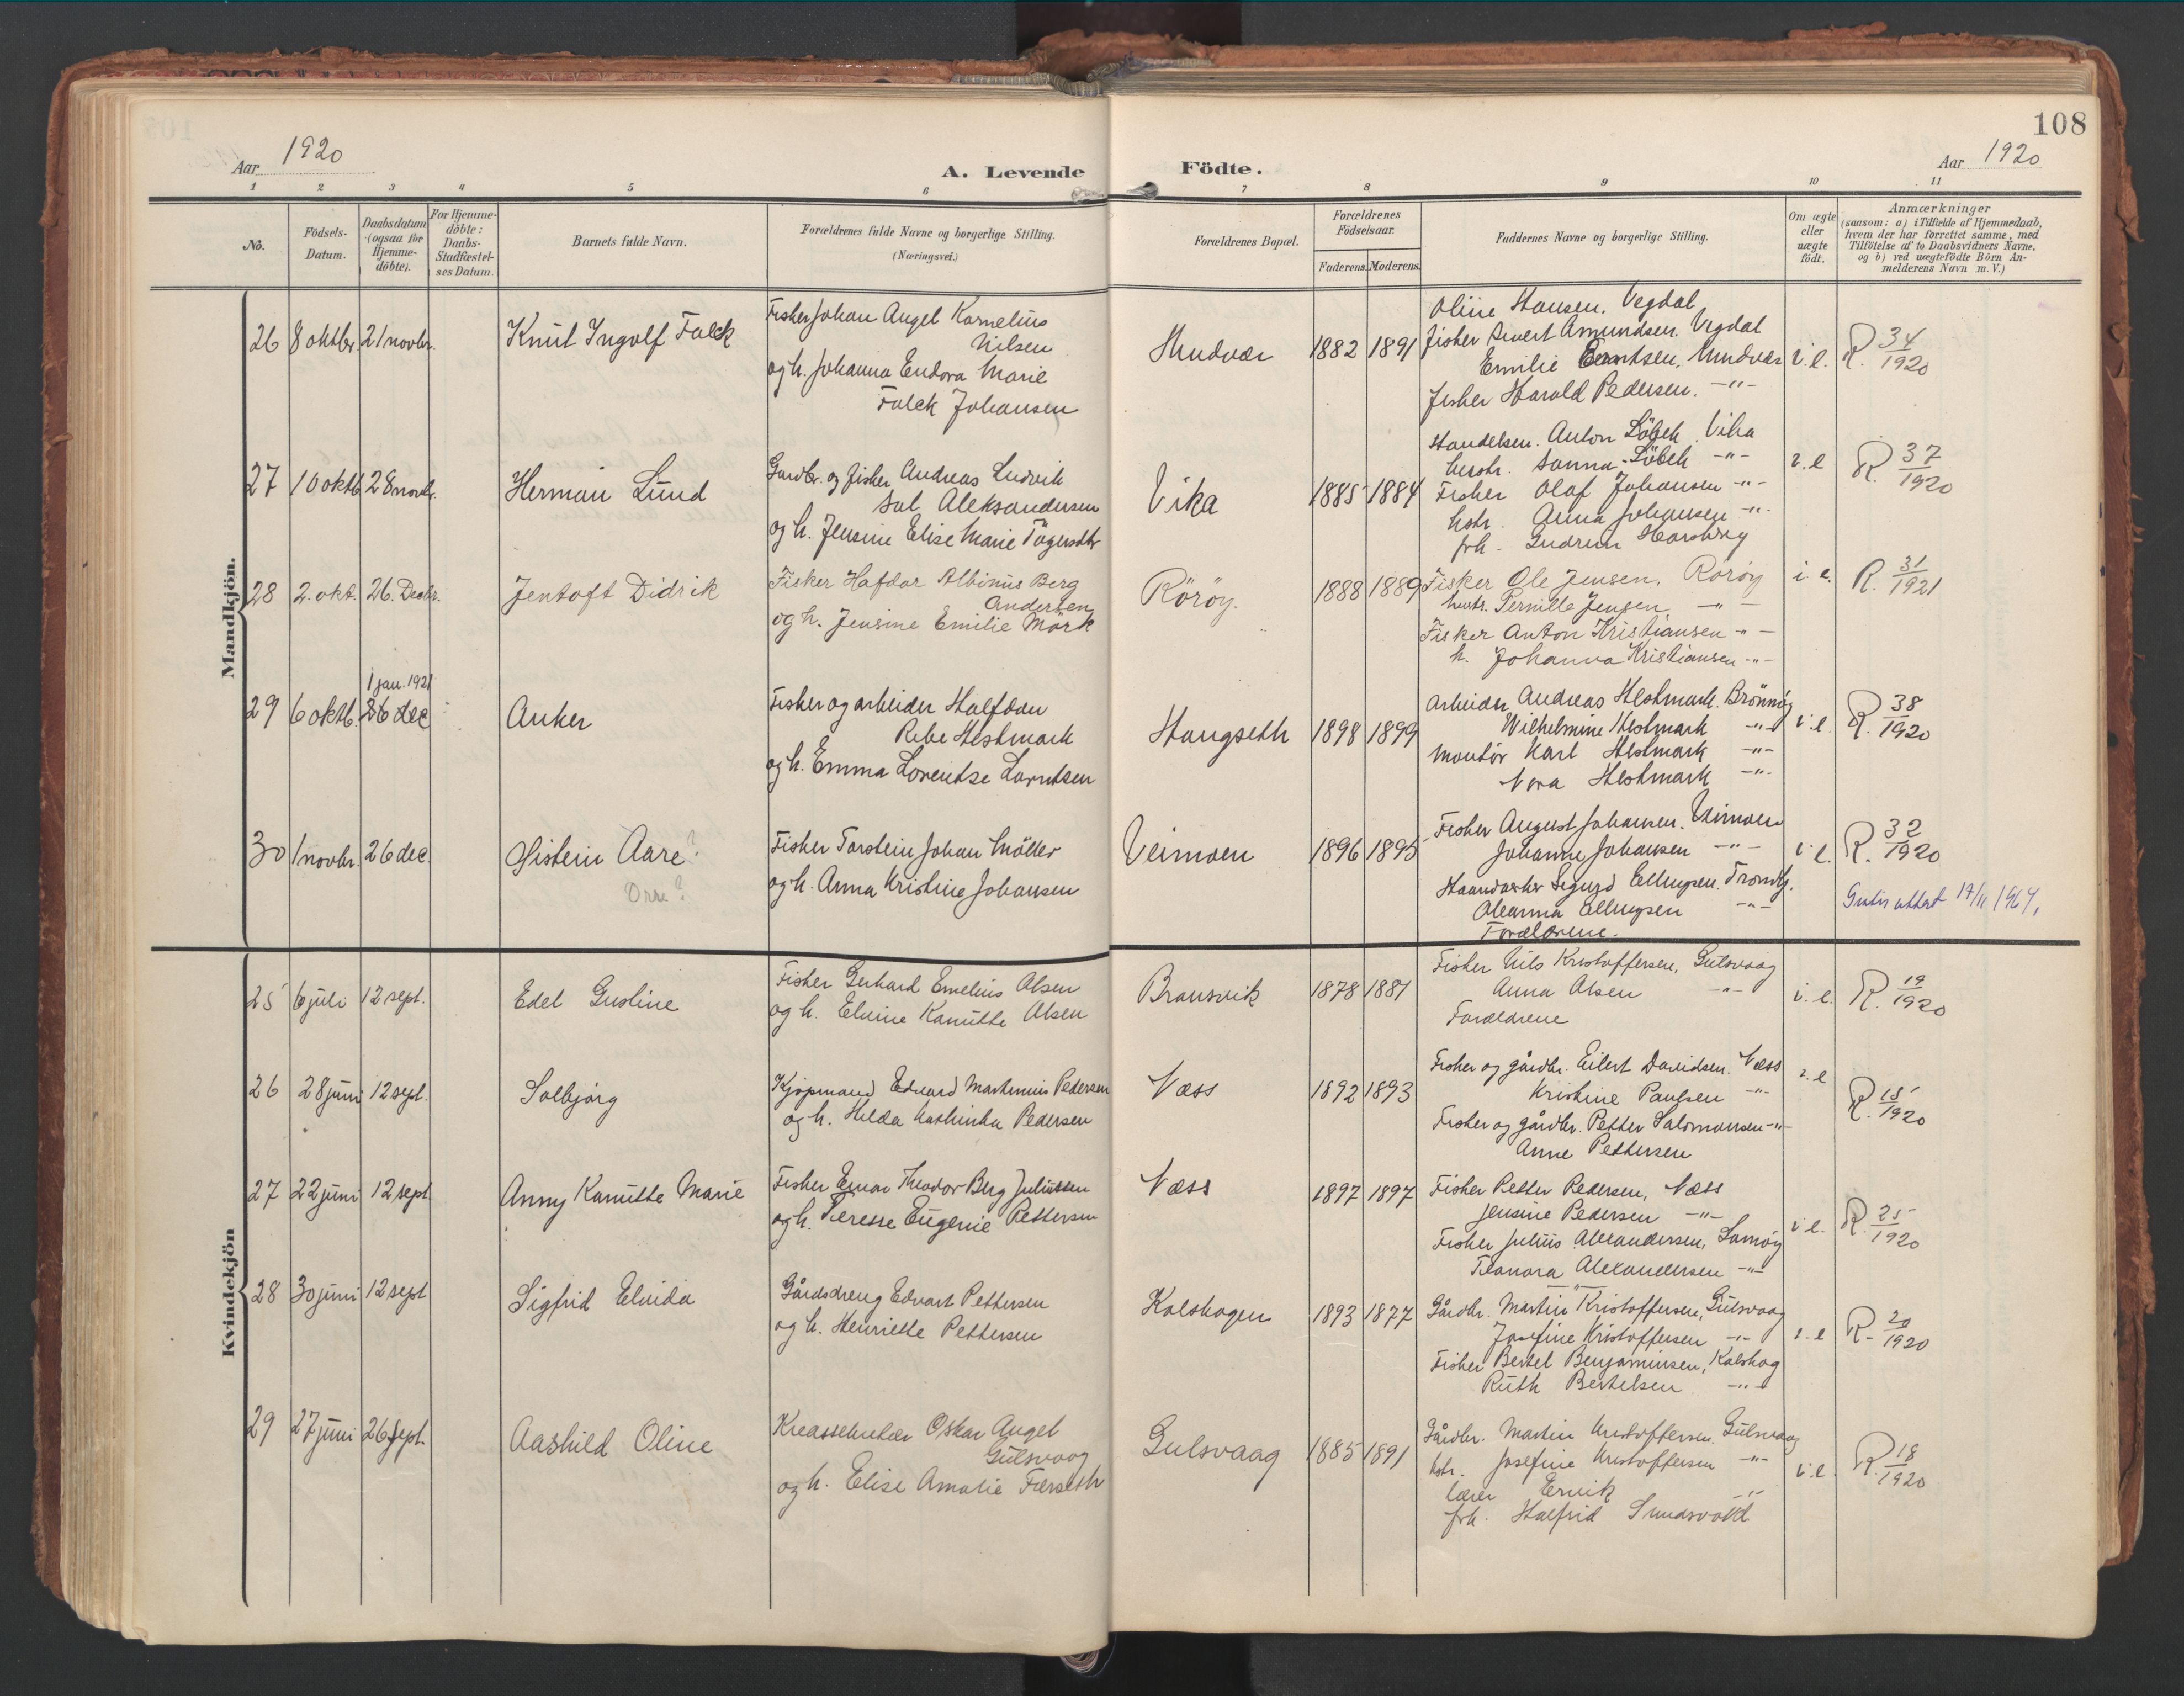 108
Aar 1920
A. Levende Födte.
Aar 1920
1 2 3 4 5 6 7 8 9 10 11
No.
Födsels-
Datum.
Daabsdatum
(ogsaa for
Hjemme-
döbte).
For Hjemme-
döbte:
Daabs-
Stadfæstel-
ses Datum.
Barnets fulde Navn.
Forældrenes fulde Navne og borgerlige Stilling.
(Næringsvei.)
Forældrenes Bopæl.
Forældrenes
Födselsaar.
Faderens. Moderens.
Faddernes Navne og borgerlige Stilling.
Om ægte
eller
uægte
födt.
Anmærkninger
(saasom: a) i Tilfælde af Hjemmedaab,
hvem der har forrettet samme, med
Tilföielse af to Daabsvidners Navne,
og b) ved uægtefödte Börn An-
melderens Navn m. V.)
Mandkjön.
26 8 oktbr. 21 novbr. Knut Ingolf Falck
Fisker Johan Angel Kornelius
Nilsen
og h. Johanna Eudora Marie
Falck Johansen
Hundvær 1882 1891
Oline Hansen. Vegdal
Fisker Sivert Amundsen. Vegdal
Emilie Berntsen, Hundvær
Fisker Harald Pedersen. -"-
i. e. R. 34/1920
27 10 oktb 28 novbr. Herman Lund
Gardbr. og fisker Andreas Ludvik
Sal. Aleksandersen
og h. Jensine Elise Marie
Vika 1885 1884
Handelsm. Anton Löbek. Vika
hustr. Sanna Löbek -"-
Fisker Olaf Johansen -"-
hstr. Anna Johansen -"-
frk. Gudrun
i. e R. 37/1920
28 2. okt. 26. Decbr. Jentoft Didrik
Fisker Hafdor Albinus Berg
Andersen
og h. Jensine Emilie Mörk
Röröy. 1888 1889
Fisker Ole Jensen. Röröy
hustr. Pernille Jensen -"-
Fisker Anton Kristiansen -"-
h. Johanna Kristiansen -"-
i. e. R. 31/1921
1 jan. 1921
29 6 oktb. 26 dec Anker
Fisker og arbeider Halfdan
Rebe Hestmark
og h. Emma Lorentse Larntsen
Hongseth 1898 1899
Arbeider Andreas Hestmark. Brönnöy
Wilhelmine Hestmark -"-
Montör Karl Hestmark -"-
Nora Hestmark -"-
i. e. R. 38/1920
30 1 novbr. 26 dec. Öistein Aare?
Orre?
Fisker Torstein Johan Möller
og h. Anna Kristine Johansen
Veimoen 1896 1895
Fisker August Johansen. Veimoen
Johanne Johansen -"-
Haandverker Sigurd Ellingsen. Trondhj.
Aleanna Ellingsen -"-
Forældrene.
i. e. R. 32/1920
Gratis attest 17/11 1964.
Kvindekjön
25 6 juli 12 sept. Edel Gusline
Fisker Gerhard Emelius Olsen
og h. Elvine Kanutte Olsen
Bransvik 1878 1881
Fisker Nils Kristoffersen, Gulsvaag
Anna Olsen -"-
Forældrene
i. e. R. 19/1920
26 28 juni 12 sept. Solbjörg
Kjöpmand Edvard Martinius Pedersen
og h. Hilda Kathinka Pedersen
Næss 1892 1893
Fisker og gårdbr. Eilert Davidsen. Næss
Kristine Paulsen -"-
Fisker og gårdbr. Petter Salomonsen -"-
Anne Pettersen
i. e R. 15/1920
27 22 juni 12 sept Anny Kanutte Marie
Fisker Einar Theodor Berg Juliussen
og h. Terese Eugenie Pettersen
Næss 1897 1897
Fisker Petter Pedersen, Næss
Jensine Pedersen -"-
Fisker Julius Alexandersen, Lamöy
Eleanora Alexandersen -"-
i. e. R. 25/1920
28 30 juni 12 sept Sigfrid Elvida
Gårdsdreng Edvart Pettersen
og h. Henriette Pettersen
Kalshagen 1893 1877
Gårdbr. Martin Kristoffersen, Gulsvaag
Josefine Kristoffersen -"-
Fisker Bertel Benjaminsen, Kalshag
Ruth Bertelsen -"-
i. e R. 20/1920
29 27 juni 26 sept. Aashild Oline
Oskar Angel
Gulsvaag
og h. Elise Amalie Forseth
Gulsvaag 1885 1891
Gårdbr. Martin Kristoffersen. Gulsvaag
hstr. Josefine Kristoffersen -"-
lærer Ervik -"-
frk. Halfrid Sundsvold
i. e. R. 18/1920